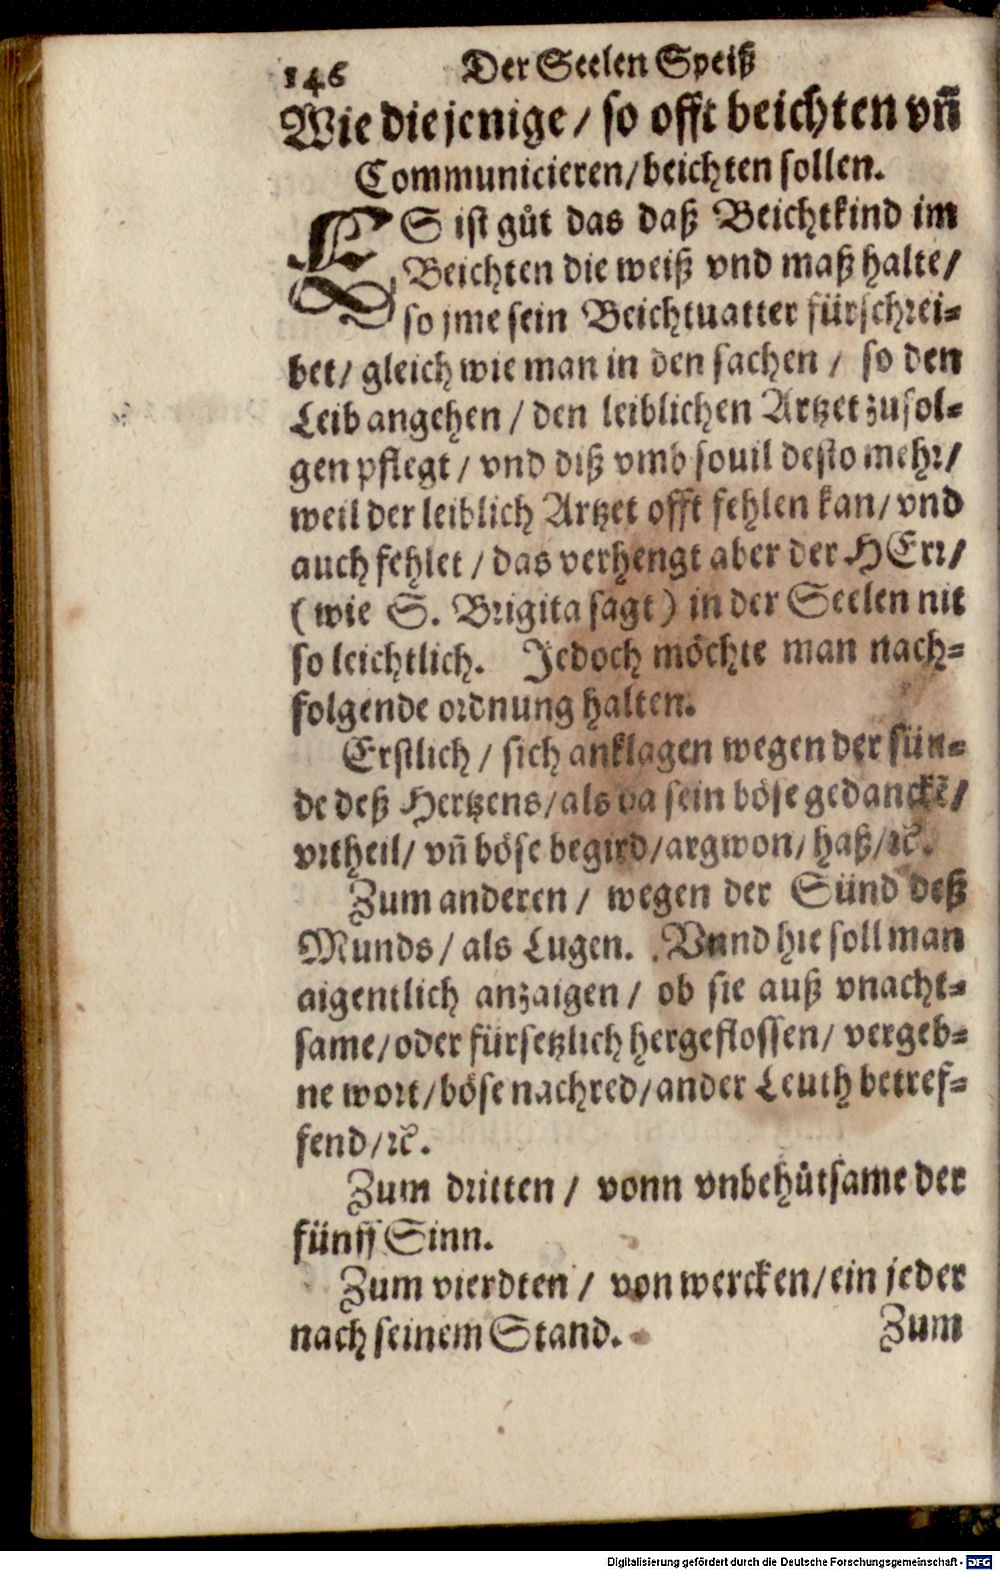 146 Der Seelen Speiß
Wie die jenige / so offt beichten vñ
Communicieren/beichten sollen.
ES ist gůt das daß Beichtkind im
Beichten die weiß vnd maß halte/
so jme sein Beichtuatter fürschrei=
bet/ gleich wie man in den sachen / so den
Leib angehen / den leiblichen Artzet zufol=
gen pflegt / vnd diß vmb souil desto mehr/
weil der leiblich Artzet offt fehlen kan/ vnd
auch fehlet / das verhengt aber der HErr/
(wie S. Brigita sagt) in der Seelen nit
so leichtlich. Jedoch möchte man nach=
folgende ordnung halten.
Erstlich / sich anklagen wegen der sün=
de deß Hertzens/als da sein böse gedanckẽ/
vrtheil/ vñ böse begird/argwon/ haß/ꝛc.
Zum anderen / wegen der Sünd deß
Munds / als Lugen. Vnnd hie soll man
aigentlich anzaigen / ob sie auß vnacht=
same/oder fürsetzlich hergeflossen/ vergeb=
ne wort/böse nachred/ander Leuth betref=
fend/ꝛc.
Zum dritten / vonn vnbehůtsame der
fünff Sinn.
Zum vierdten / von wercken/ein jeder
nach seinem Stand. Zum
Digitalisierung gefördert durch die Deutsche Forschungsgemeinschaft - DFG